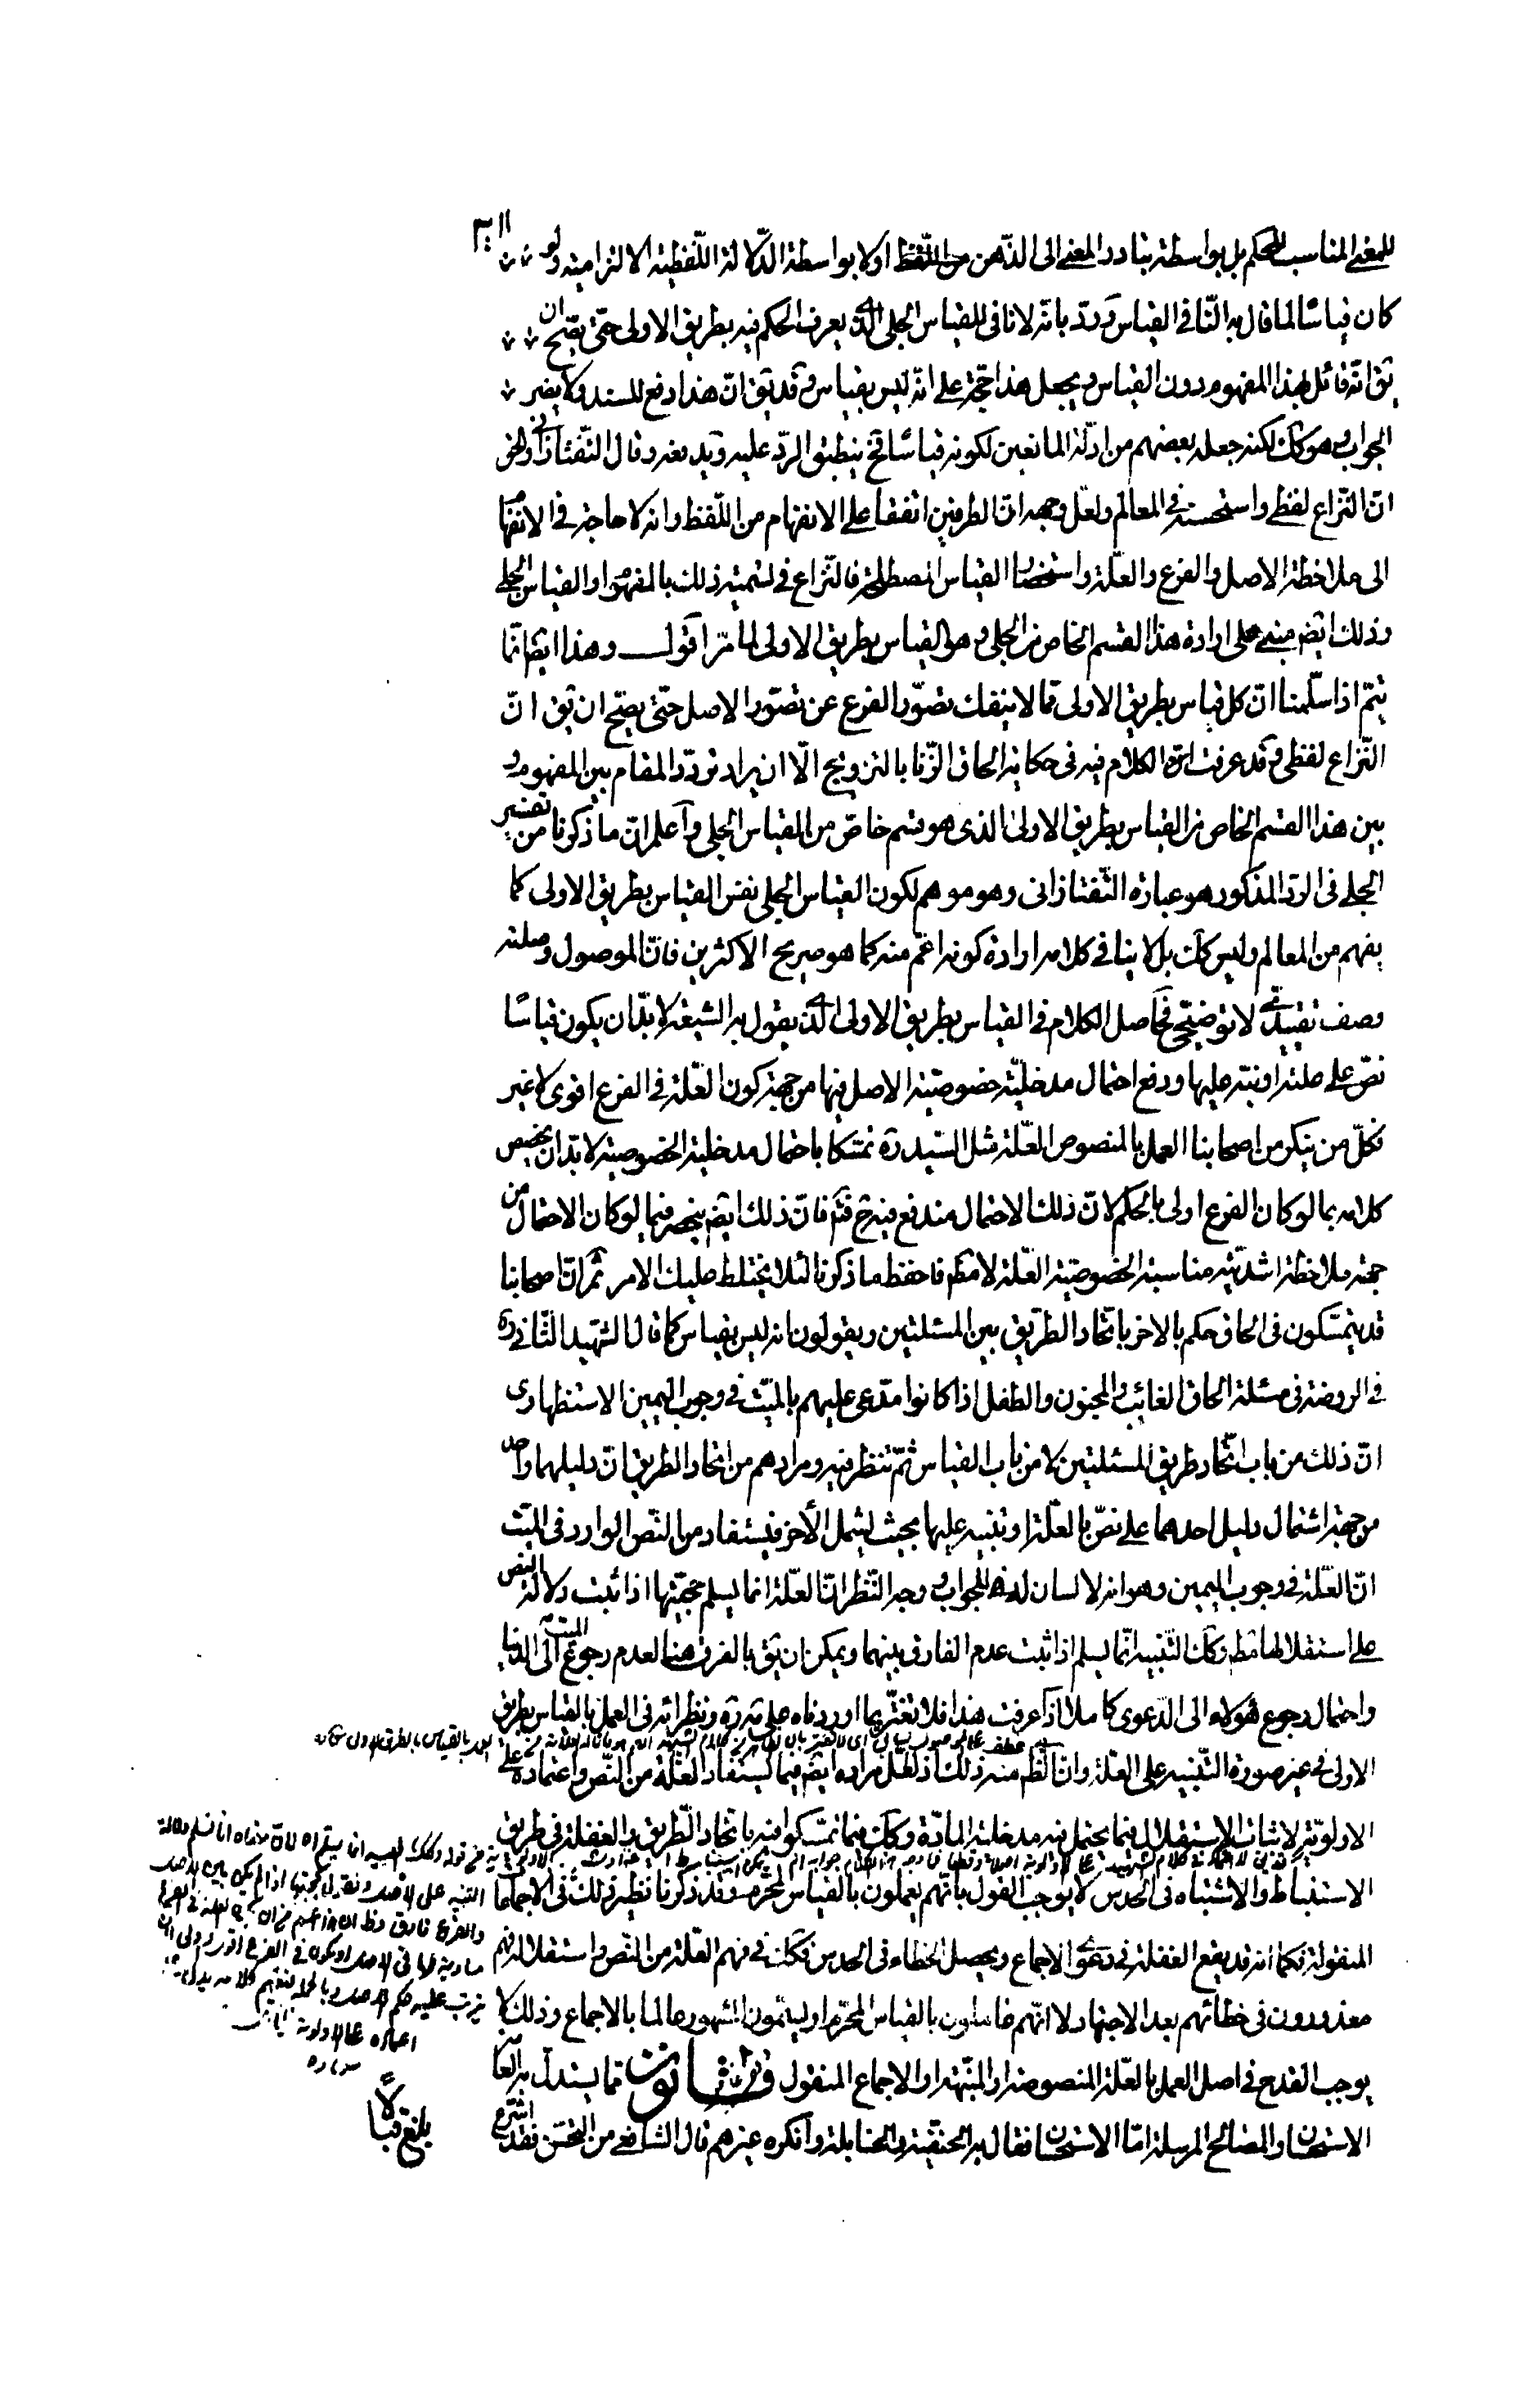 للمعنى المناسب للحكم بل بواسطة تبادر المعنى الى الذّهن من اللّفظ اولا بواسطة الدّلالة اللّفظيّة الالتزاميّة ولو
كان قياسًا لما قال به النّافى القياس وردّ بانّه لا نافى للقياس الجلى الّذى يعرف الحكم فيه بطريق الاولى حتّى يصّح ان
يقَ انّه قائل بهذا المفهوم دون القياس ويجعل هذا حجّة على انّه ليس بقياس وقد يقَ انّ هذا دفع للسند ولا يضر
الجواب وهو كَكَ لكنه جعله بعضهم من ادلّة المانعين لكونه قياسًا فحَ ينطبق الردّ عليه ويدفعه وقال التّفتازانى والحق
انّ النّزاع لفظى واستحسنه فى المعالم ولعلّ وجهه انّ الطرفين اتفقا على الانفهام من اللّفظ وانه لا حاجة فى الانفها
الى ملاحظة الاصل والفرع والعلّة واستحضار القياس المصطلح فالنّزاع فى تسمية ذلك بالمفهوم او القياس الجلى
وذلك ايضَ مبنى على ارادة هذا القسم الخاص من الجلى وهو القياس بطريق الاولى لما مرّ اقول وهذا ايضَ انّما
يتمّ اذا سلّمنا انّ كل قياس بطريق الاولى ممّا لا ينفك تصوّر الفرع عن تصوّر الاصل حتّى يصّح ان يقَ انّ
النّزاع لفظى وقد عرفت انّ الكلام فيه فى حكاية الحاق الزّنا بالتزويج الّا ان يراد تردّد المقام بين المفهوم و
بين هذا القسم الخاص من القياس بطريق الاولى الذى هو قسم خاصّ من القياس الجلى واعلم انّ ما ذكرنا من تفسير
الجلى فى الردّ المذكور هو عبارة التّفتازانى وهو موهم لكون القياس الجلى نفس القياس بطريق الاولى كما
يفهم من المعالم وليس كَكَ بل لا ينافى كلامه ارادة كونه اعمّ منه كما هو صريح الاكثرين فانّ الموصول وصلته
وصف تقييدىّ لا توضيحى فحاصل الكلام فى القياس بطريق الاولى الّذى يقول به الشيعة لا بدّ ان يكون قياسًا
نصّ على علته او نبّه عليها ودفع احتمال مدخليّة خصوصيّة الاصل فيها من جهة كون العلّة فى الفرع اقوى لا غير
فكلّ من ينكر من اصحابنا العمل بالمنصوص العلّة مثل السّيد ره تمسّكا باحتمال مدخلية الخصوصية لا بدّ ان يخصص
كلامه بما لو كان الفرع اولى بالحكم لانّ ذلك الاحتمال مندفع فيه حَ فتَم فانّ ذلك ايضَ ينحصر فيما لو كان الاحتمال من
جهة ملاحظة اشدّيّة مناسبة الخصوصيّة العلّة لا مطَ فاحفظ ما ذكرنا لئلا يختلط عليك الامر ثمّ انّ اصحابنا
قد يتمسّكون فى الحاق حكم بالاخر باتّحاد الطّريق بين المسئلتين ويقولون انه ليس بقياس كما قال الشّهيد الثّانى ره
فى الروضة فى مسئلة الحاق الغائب والمجنون والطفل اذا كانوا مدّعى عليهم بالميّت فى وجوب اليمين الاستظهارى
انّ ذلك من باب اتّحاد طريق المسئلتين لا من باب القياس ثمّ تنظّر فيه ومرادهم من اتحاد الطريق انّ دليلهما واحد
من جهة اشتمال دليل احدهما على نصّ بالعلّة او تنبيه عليها بحيث يشمل الأخر فيستفاد من النّص الوارد فى الميّت
انّ العلّة فى وجوب اليمين وهو انه لا لسان له للجواب ووجه النّظر انّ العلّة انما يسلم حجّيتها اذا ثبت دلالة النصّ
على استقلالها مطَ وكَكَ التّنبيه انّما يسلم اذا ثبت عدم الفارق بينهما ويمكن ان يقَ بالفرق هنا لعدم رجوع الميّت الى الدنيا
واحتمال رجوع هؤلاء الى الدّعوى كاملا اذا عرفت هذا فلا تغترّ بما اوردناه على ره ونظرائه فى العمل بالقياس بطريق
الاولى فى غير صورة التّنبيه على العلّة وانّ الظَم منه ذلك اذ لعلّ مراده ايضَ فيما يستفاد العلّة من النّصّ واعتماده على
الاولويّة لاثبات الاستقلال فيما يحتمل فيه مدخلية المادّة وكَكَ فيما تمسّكوا فيه باتّحاد الطّريق والغفلة فى طريق
الاستنباط والاشتباه فى الحدس لا يوجب القول بانّهم يعملون بالقياس المحرّم وقد ذكرنا نظير ذلك فى الاجماعا
المنقولة فكما انه قد يقع الغفلة فى دعوى الاجماع ويحصل الخطاء فى الحدس فكَكَ فى فهم العلّة من النّص واستقلاله فهم
معذورون فى خطائهم بعد الاجتهاد لا انّهم عاملون بالقياس المحرّم او يسمّون المشهور عالما بالاجماع وذلك لا
يوجب القدح فى اصل العمل بالعلّة المنصوصة او المنبّهة او الاجماع المنقول قانون ممّا يستدلّ به العا
الاستحسان والمصالح المرسلة امّا الاستحسان فقال به الحنفيّة والحنابلة وانكره غيرهم قال الشافعى من استحسن فقد شرّع
بلغ قبالًا